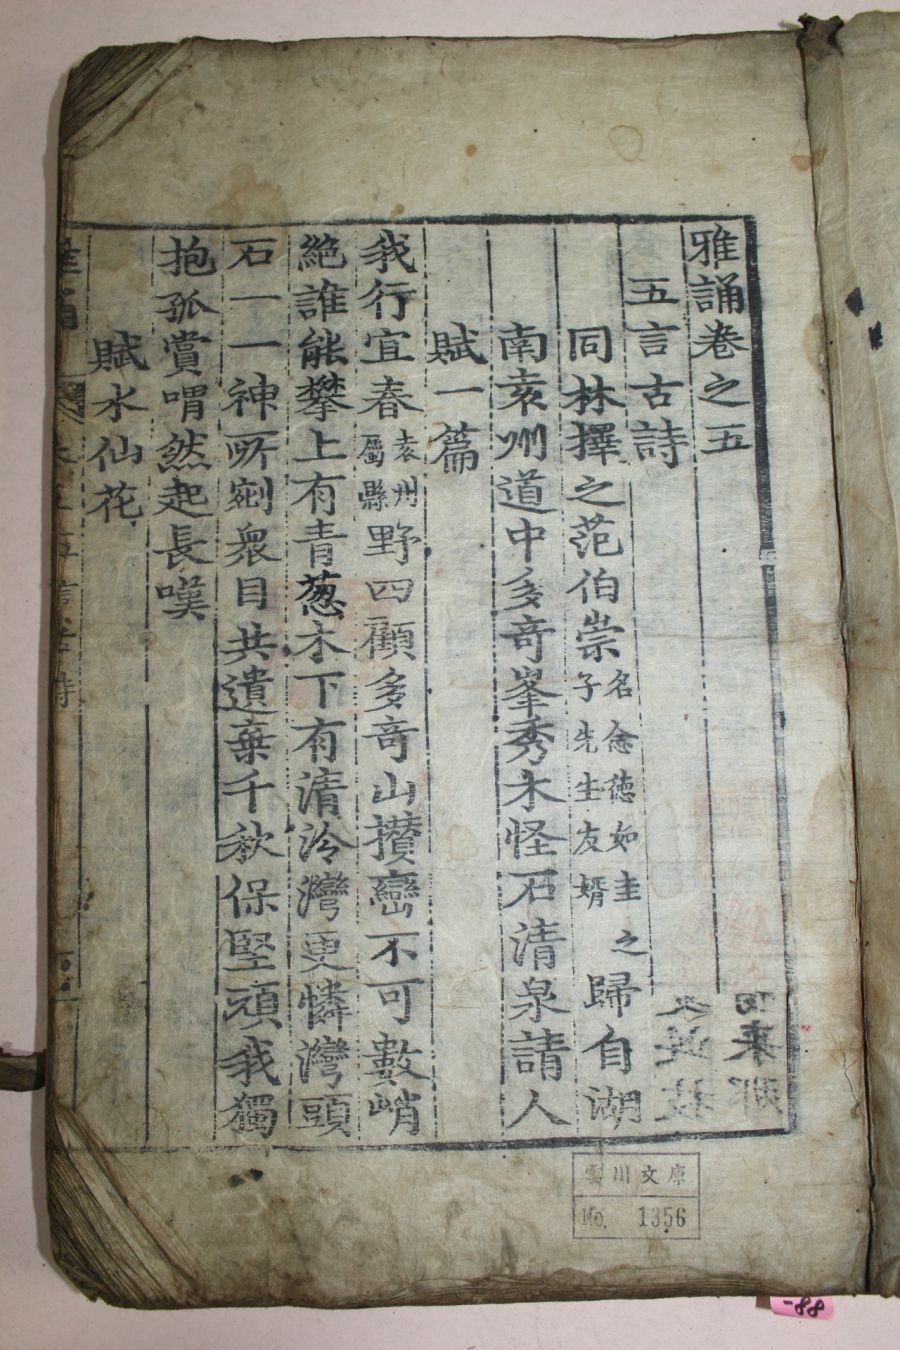 雅誦卷之五
五言古詩
同林擇之范伯崇名念德如圭之子先生友壻歸自湖
南袁州道中多奇峯秀木怪石清泉請人
賦一篇
我行宜春袁州屬縣野四顧多奇山攢巒不可數峭
絶誰能攀上有青葱木下有清泠灣更憐灣頭
石一一神所剜衆目共遺棄千秋保堅頑我獨
抱孤賞喟然起長嘆
賦水仙花
雲川文庫
No. 1356
-88